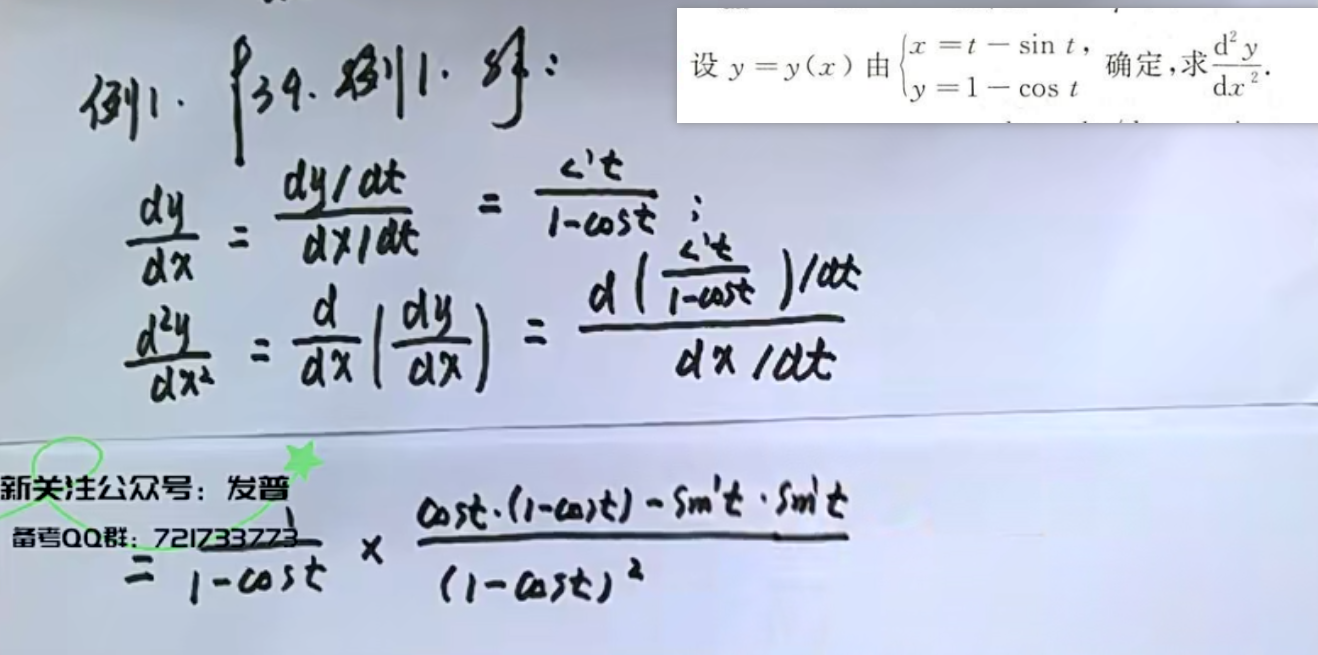 设 y = y(x) 由 { x = t − sin t, y = 1 − cos t 确定,求 d²y/dx².
例1. {39. 例1. 8}:
dy/dx = (dy/dt)/(dx/dt) = s't/(1-cost) ;
d²y/dx² = d/dx (dy/dx) = d(s't/(1-cost))/dt / (dx/dt)
新关注公众号：发普
备考QQ群：721733773
= 1/(1-cost) × (cost·(1-cost) - sin't · sin't)/(1-cost)²